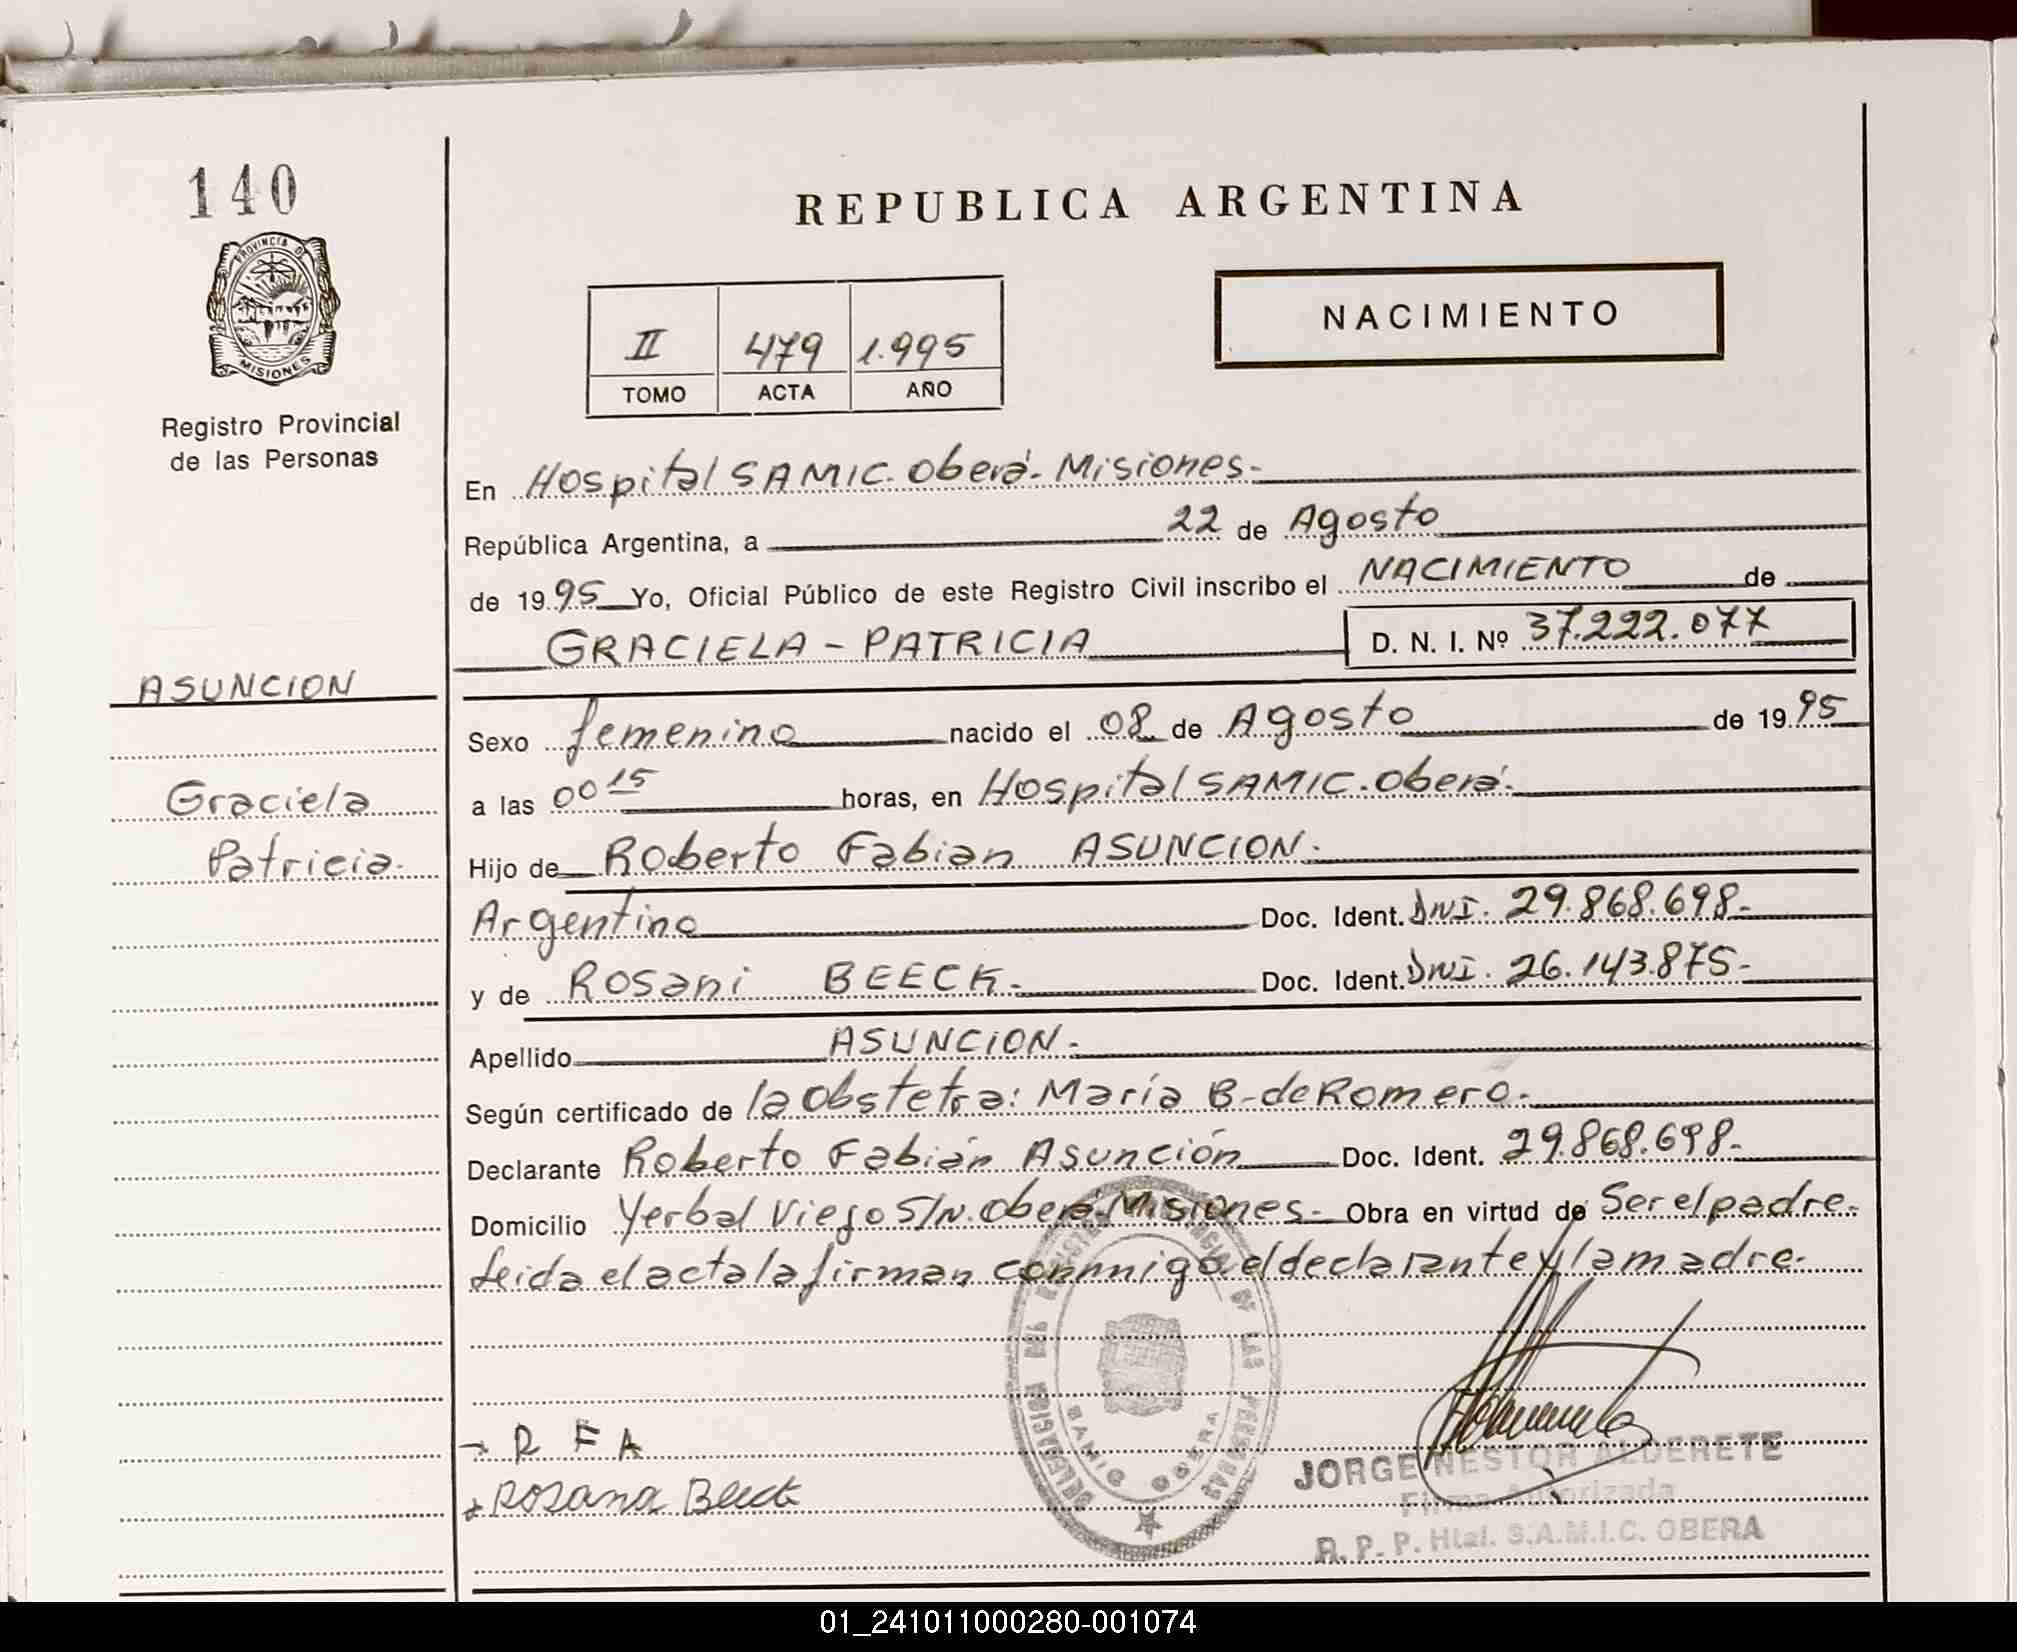 140
REPUBLICA ARGENTINA
PROVINCIA DE
MISIONES
Registro Provincial
de las Personas
NACIMIENTO
II 479 1.995
TOMO ACTA AÑO
En Hospital SAMIC. Oberá. Misiones.
República Argentina, a 22 de Agosto
de 1995 Yo, Oficial Público de este Registro Civil inscribo el NACIMIENTO de
GRACIELA - PATRICIA D. N. I. Nº 37.222.077
ASUNCION
Sexo femenino nacido el 08 de Agosto de 1995
Graciela
a las 00 15 horas, en Hospital SAMIC. Oberá.
Patricia.
Hijo de Roberto Fabian ASUNCION.
Argentino Doc. Ident. DNI. 29.868.698-
y de Rosani BEECK. Doc. Ident. DNI. 26.143.875-
Apellido ASUNCION.
Según certificado de la Obstetra: María B. de Romero.
Declarante Roberto Fabián Asunción Doc. Ident. 29.868.698-
Domicilio Yerbal Viejo S/N. Oberá-Misiones- Obra en virtud de Ser el padre.
Leida el acta la firman conmigo el declarante y la madre.
DELEGACION DEL REGISTRO PROVINCIAL DE LAS PERSONAS
SAMIC OBERA
R F A
Rosana Beeck
JORGE NESTOR ALDERETE
Firma Autorizada
R. P. P. Htal. S.A.M.I.C. OBERA
01_241011000280-001074